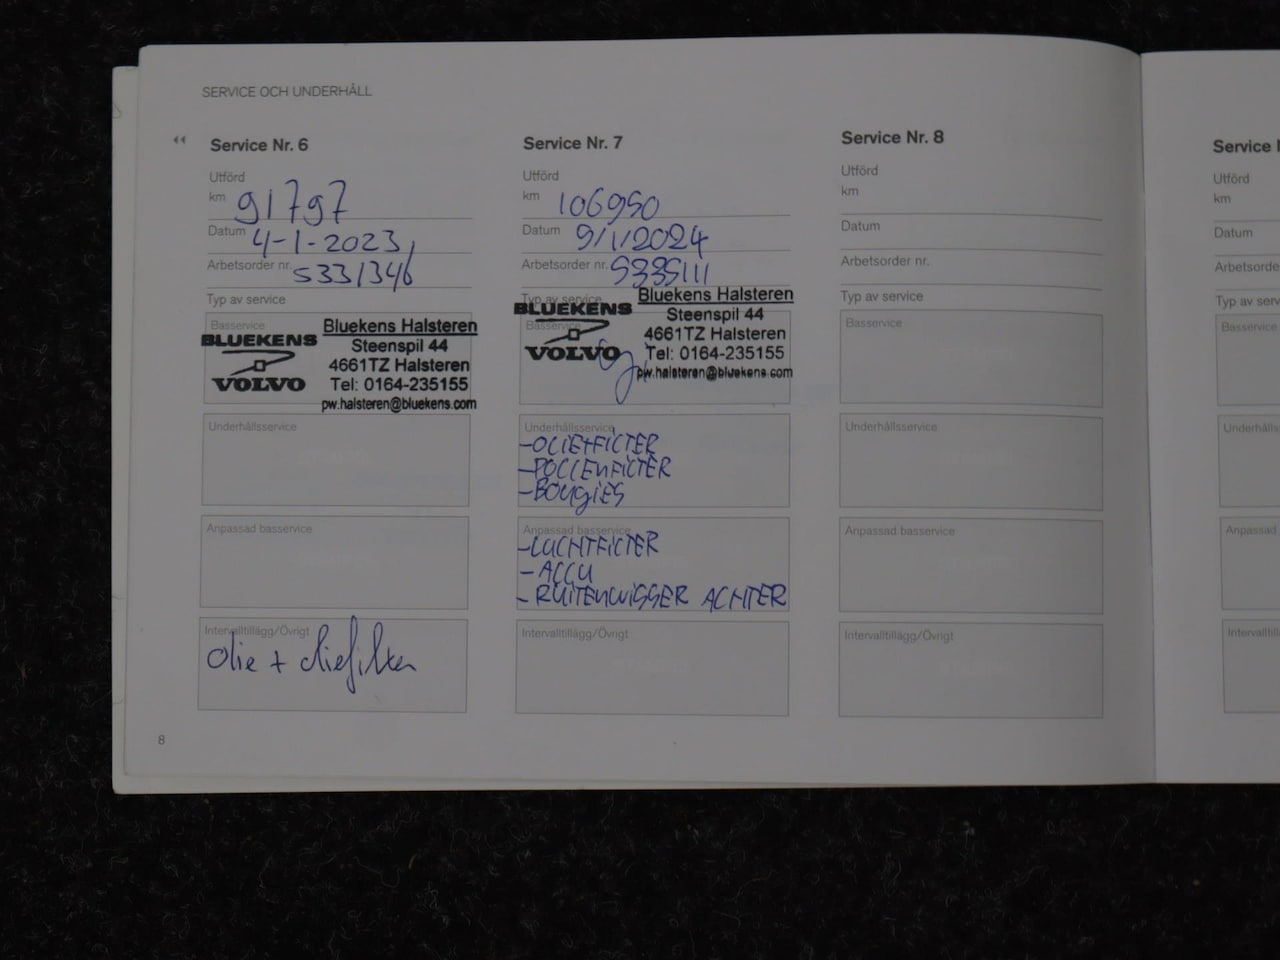 SERVICE OCH UNDERHÅLL
Service Nr. 6
Utförd
km 91797
Datum 4-1-2023
Arbetsorder nr. S331346
Typ av service
Basservice
BLUEKENS
VOLVO
Bluekens Halsteren
Steenspil 44
4661TZ Halsteren
Tel: 0164-235155
pw.halsteren@bluekens.com
Underhållsservice
Anpassad basservice
Intervalltillägg/Övrigt
Olie + oliefilter
8
Service Nr. 7
Utförd
km 106950
Datum 9/1/2024
Arbetsorder nr. S335111
Typ av service
Basservice
BLUEKENS
VOLVO
Bluekens Halsteren
Steenspil 44
4661TZ Halsteren
Tel: 0164-235155
pw.halsteren@bluekens.com
Underhållsservice
-OLIE+FILTER
-POLLENFILTER
-BOUGIES
Anpassad basservice
-LUCHTFILTER
-ACCU
-RUITENWISSER ACHTER
Intervalltillägg/Övrigt
Service Nr. 8
Utförd
km
Datum
Arbetsorder nr.
Typ av service
Basservice
Underhållsservice
Anpassad basservice
Intervalltillägg/Övrigt
Service N
Utförd
km
Datum
Arbetsorde
Typ av serv
Basservice
Underhålls
Anpassad
Intervalltill